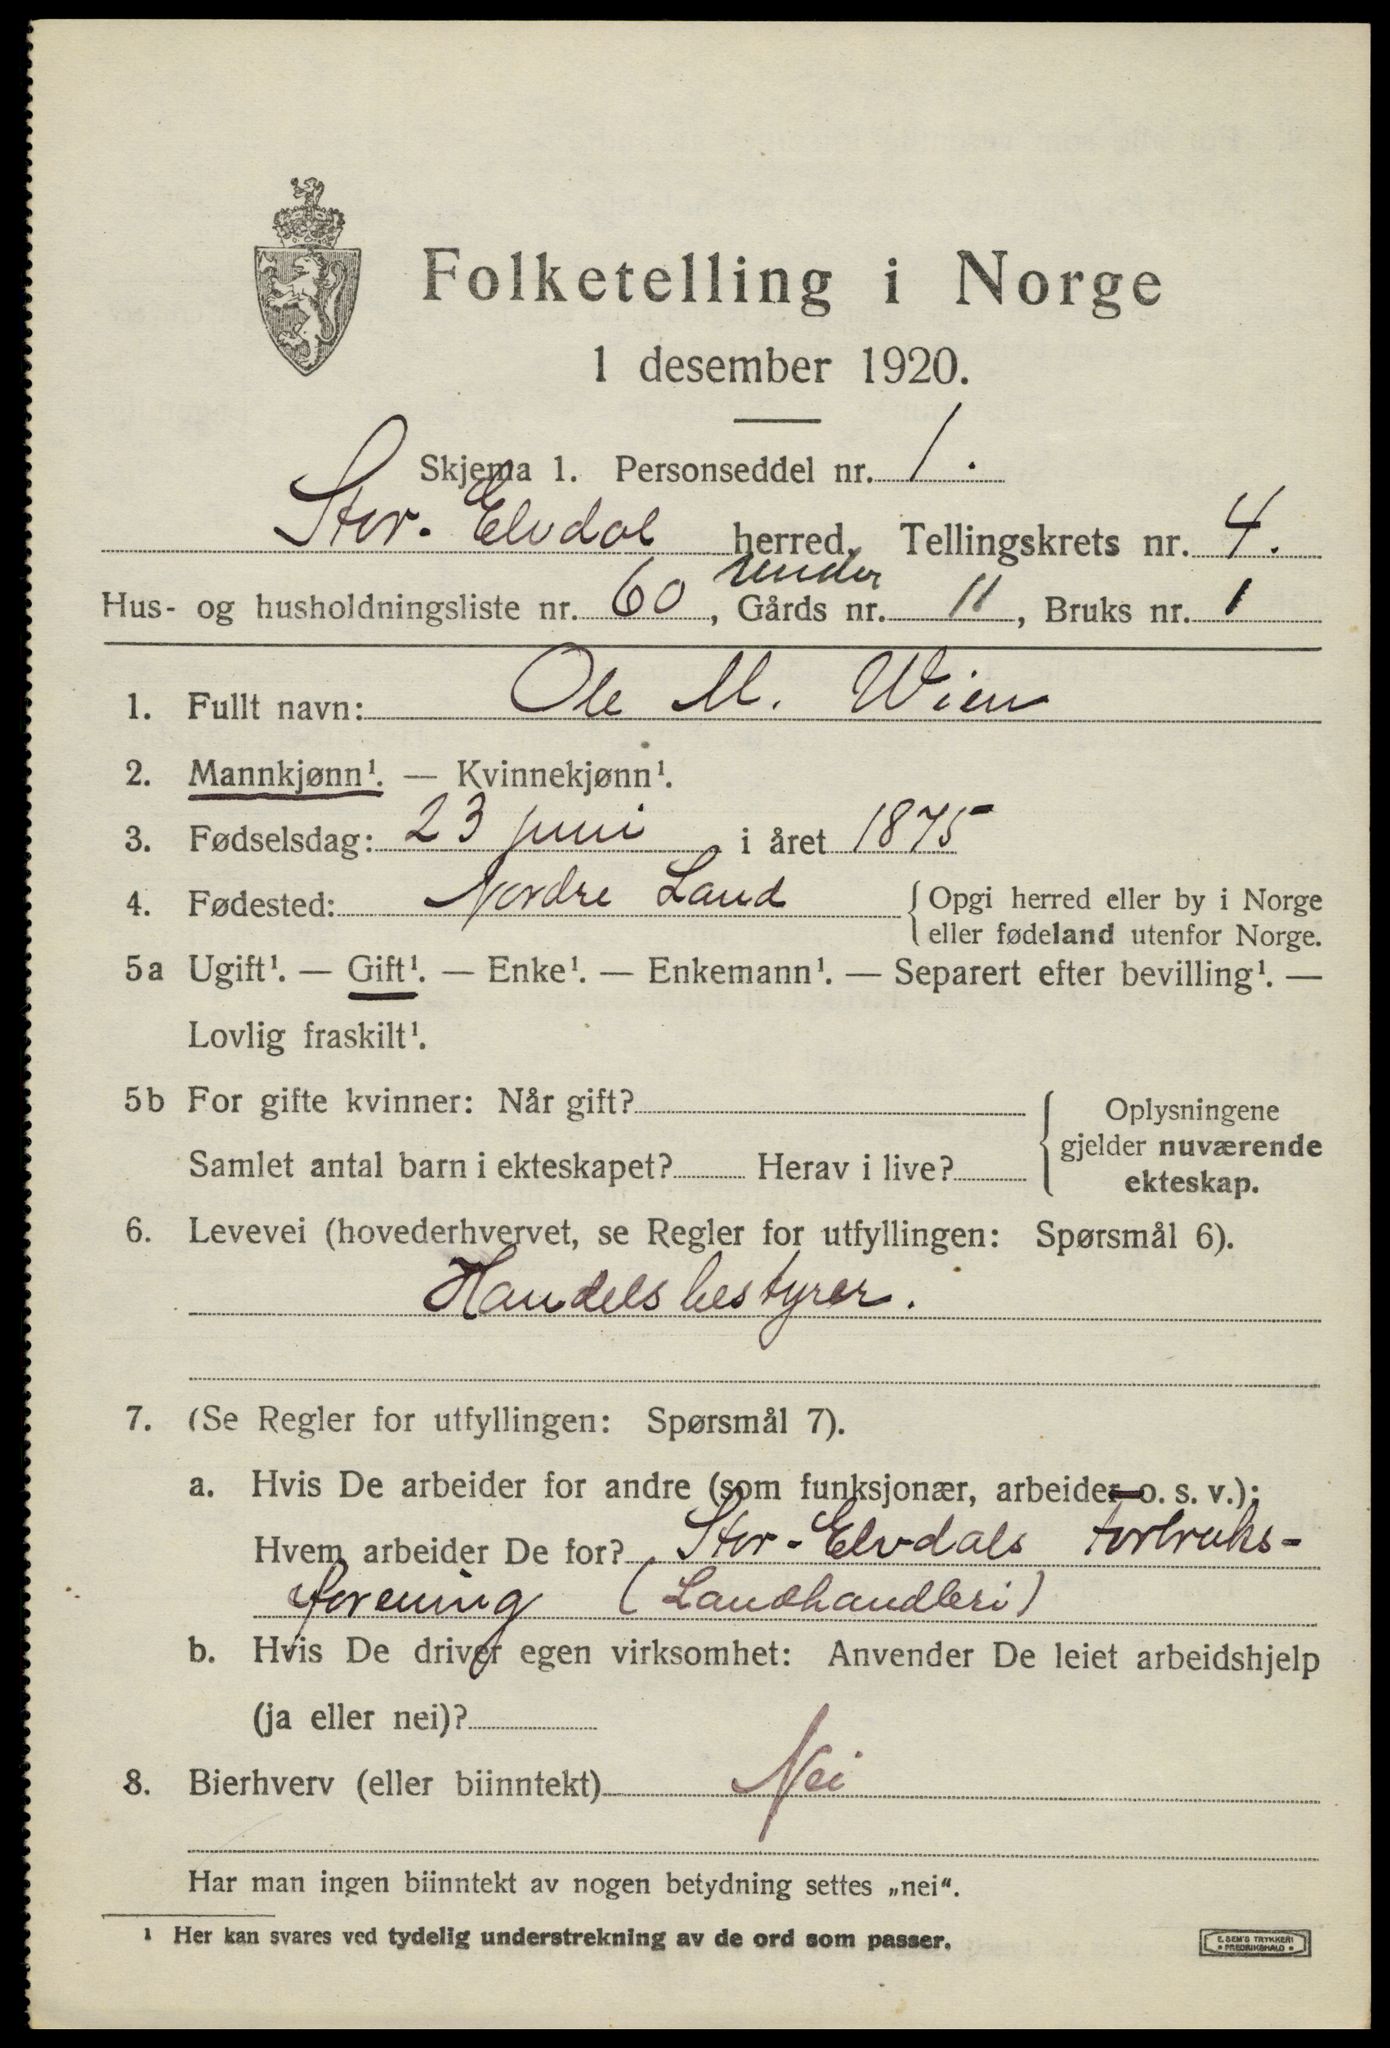 Folketelling i Norge
1 desember 1920.
Skjema 1. Personseddel nr. 1.
Stor-Elvdal herred. Tellingskrets nr. 4.
under
Hus- og husholdningsliste nr. 60, Gårds nr. 11, Bruks nr. 1
1. Fullt navn: Ole M. Wien
2. Mannkjønn¹. — Kvinnekjønn¹.
3. Fødselsdag: 23 juni i året 1875
4. Fødested: Nordre Land { Opgi herred eller by i Norge
eller fødeland utenfor Norge.
5a Ugift¹. — Gift¹. — Enke¹. — Enkemann¹. — Separert efter bevilling¹. —
Lovlig fraskilt¹.
5b For gifte kvinner: Når gift? { Oplysningene
gjelder nuværende
Samlet antal barn i ekteskapet? Herav i live?
ekteskap.
6. Levevei (hovederhvervet, se Regler for utfyllingen: Spørsmål 6).
Handelsbestyrer.
7. (Se Regler for utfyllingen: Spørsmål 7).
a. Hvis De arbeider for andre (som funksjonær, arbeider o. s. v.):
Hvem arbeider De for? Stor-Elvdals Forbruks-
forening (Landhandleri)
b. Hvis De driver egen virksomhet: Anvender De leiet arbeidshjelp
(ja eller nei)?
8. Bierhverv (eller biinntekt) Nei
Har man ingen biinntekt av nogen betydning settes „nei“.
¹ Her kan svares ved tydelig understrekning av de ord som passer.
E. SEM'S TRYKKERI
• FREDRIKSHALD •